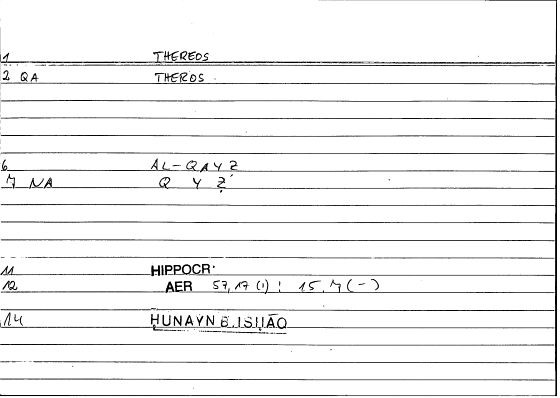 1 THEREOS
2 QA THEROS
6 AL-QAYZ
7 NA Q Y Ẓ
11 HIPPOCR.
12 AER 57,17 (1) : 15,7 (-)
14 HUNAYN B. ISḤĀQ